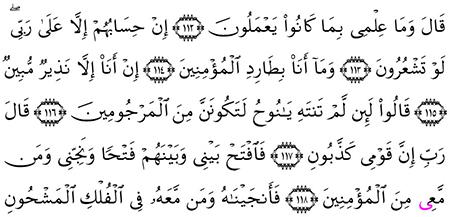 قَالَ وَمَا عِلْمِى بِمَا كَانُوا۟ يَعْمَلُونَ ﴿١١٢﴾ إِنْ حِسَابُهُمْ إِلَّا عَلَىٰ رَبِّى ۖ
لَوْ تَشْعُرُونَ ﴿١١٣﴾ وَمَآ أَنَا۠ بِطَارِدِ ٱلْمُؤْمِنِينَ ﴿١١٤﴾ إِنْ أَنَا۠ إِلَّا نَذِيرٌ مُّبِينٌ
﴿١١٥﴾ قَالُوا۟ لَئِن لَّمْ تَنتَهِ يَـٰنُوحُ لَتَكُونَنَّ مِنَ ٱلْمَرْجُومِينَ ﴿١١٦﴾ قَالَ
رَبِّ إِنَّ قَوْمِى كَذَّبُونِ ﴿١١٧﴾ فَٱفْتَحْ بَيْنِى وَبَيْنَهُمْ فَتْحًا وَنَجِّنِى وَمَن
مَّعِى مِنَ ٱلْمُؤْمِنِينَ ﴿١١٨﴾ فَأَنجَيْنَـٰهُ وَمَن مَّعَهُۥ فِى ٱلْفُلْكِ ٱلْمَشْحُونِ